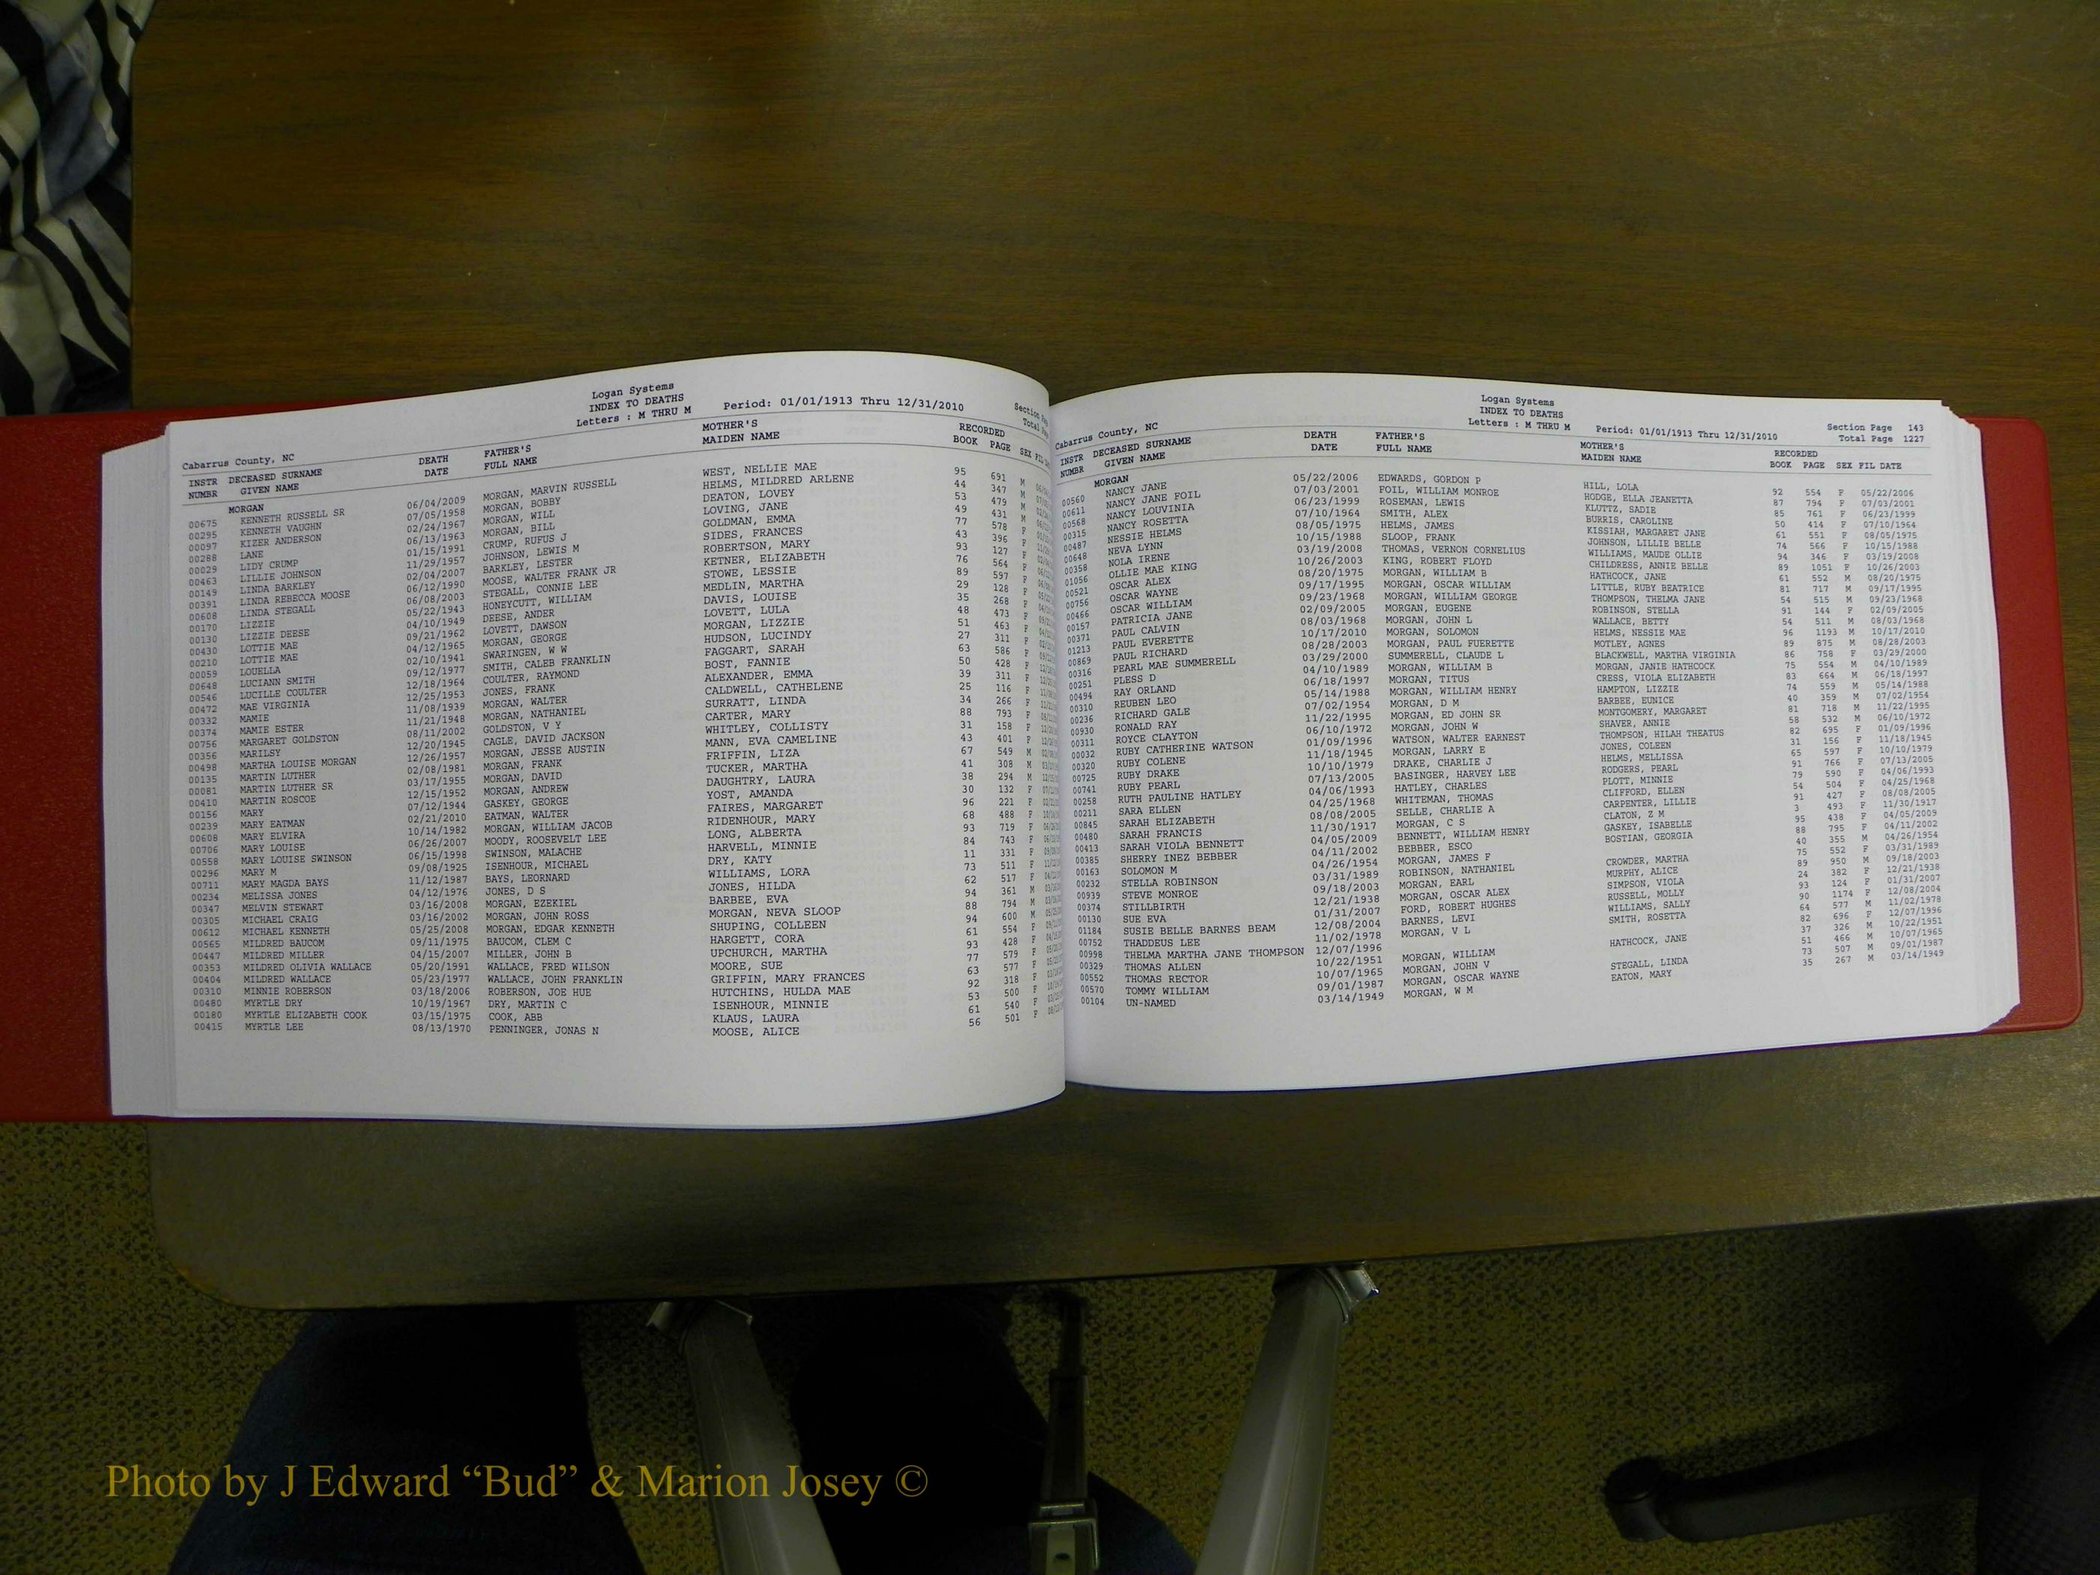 Logan Systems
INDEX TO DEATHS
Cabarrus County, NC Letters : M THRU M Period: 01/01/1913 Thru 12/31/2010 Section Total
INSTR NUMBR DECEASED SURNAME GIVEN NAME DEATH DATE FATHER'S FULL NAME MOTHER'S MAIDEN NAME RECORDED BOOK PAGE SEX FIL
MORGAN
00675 KENNETH RUSSELL SR 06/04/2009 MORGAN, MARVIN RUSSELL WEST, NELLIE MAE 95 691 M
00295 KENNETH VAUGHN 07/05/1958 MORGAN, BOBBY HELMS, MILDRED ARLENE 44 347 M
00097 KIZER ANDERSON 02/24/1967 MORGAN, WILL DEATON, LOVEY 53 479 M
00288 LANE 06/13/1963 MORGAN, BILL LOVING, JANE 49 431 M
00029 LIDY CRUMP 01/15/1991 CRUMP, RUFUS J GOLDMAN, EMMA 77 578 F
00463 LILLIE JOHNSON 11/29/1957 JOHNSON, LEWIS M SIDES, FRANCES 43 396 F
00149 LINDA BARKLEY 02/04/2007 BARKLEY, LESTER ROBERTSON, MARY 93 127 F
00391 LINDA REBECCA MOOSE 06/12/1990 MOOSE, WALTER FRANK JR KETNER, ELIZABETH 76 564 F
00608 LINDA STEGALL 06/08/2003 STEGALL, CONNIE LEE STOWE, LESSIE 89 597 F
00170 LIZZIE 05/22/1943 HONEYCUTT, WILLIAM MEDLIN, MARTHA 29 128 F
00130 LIZZIE DEESE 04/10/1949 DEESE, ANDER DAVIS, LOUISE 35 268 F
00430 LOTTIE MAE 09/21/1962 LOVETT, DAWSON LOVETT, LULA 48 473 F
00210 LOTTIE MAE 04/12/1965 MORGAN, GEORGE MORGAN, LIZZIE 51 463 F
00059 LOUELLA 02/10/1941 SWARINGEN, W W HUDSON, LUCINDY 27 311 F
00648 LUCIANN SMITH 09/12/1977 SMITH, CALEB FRANKLIN FAGGART, SARAH 63 586 F
00546 LUCILLE COULTER 12/18/1964 COULTER, RAYMOND BOST, FANNIE 50 428 F
00472 MAE VIRGINIA 12/25/1953 JONES, FRANK ALEXANDER, EMMA 39 311 F
00332 MAMIE 11/08/1939 MORGAN, WALTER CALDWELL, CATHELENE 25 116 F
00374 MAMIE ESTER 11/21/1948 MORGAN, NATHANIEL SURRATT, LINDA 34 266 F
00756 MARGARET GOLDSTON 08/11/2002 GOLDSTON, V Y CARTER, MARY 88 793 F
00356 MARILSY 12/20/1945 CAGLE, DAVID JACKSON WHITLEY, COLLISTY 31 158 F
00498 MARTHA LOUISE MORGAN 12/26/1957 MORGAN, JESSE AUSTIN MANN, EVA CAMELINE 43 401 F
00135 MARTIN LUTHER 02/08/1981 MORGAN, FRANK FRIFFIN, LIZA 67 549 M
00081 MARTIN LUTHER SR 03/17/1955 MORGAN, DAVID TUCKER, MARTHA 41 308 M
00410 MARTIN ROSCOE 12/15/1952 MORGAN, ANDREW DAUGHTRY, LAURA 38 294 M
00156 MARY 07/12/1944 GASKEY, GEORGE YOST, AMANDA 30 132 F
00239 MARY EATMAN 02/21/2010 EATMAN, WALTER FAIRES, MARGARET 96 221 F
00608 MARY ELVIRA 10/14/1982 MORGAN, WILLIAM JACOB RIDENHOUR, MARY 68 488 F
00706 MARY LOUISE 06/26/2007 MOODY, ROOSEVELT LEE LONG, ALBERTA 93 719 F
00558 MARY LOUISE SWINSON 06/15/1998 SWINSON, MALACHE HARVELL, MINNIE 84 743 F
00296 MARY M 09/08/1925 ISENHOUR, MICHAEL DRY, KATY 11 331 F
00711 MARY MAGDA BAYS 11/12/1987 BAYS, LEONARD WILLIAMS, LORA 73 511 F
00234 MELISSA JONES 04/12/1976 JONES, D S JONES, HILDA 62 517 F
00347 MELVIN STEWART 03/16/2008 MORGAN, EZEKIEL BARBEE, EVA 94 361 M
00305 MICHAEL CRAIG 03/16/2002 MORGAN, JOHN ROSS MORGAN, NEVA SLOOP 88 794 M
00612 MICHAEL KENNETH 05/25/2008 MORGAN, EDGAR KENNETH SHUPING, COLLEEN 94 600 M
00565 MILDRED BAUCOM 09/11/1975 BAUCOM, CLEM C HARGETT, CORA 61 554 F
00447 MILDRED MILLER 04/15/2007 MILLER, JOHN B UPCHURCH, MARTHA 93 428 F
00353 MILDRED OLIVIA WALLACE 05/20/1991 WALLACE, FRED WILSON MOORE, SUE 77 579 F
00404 MILDRED WALLACE 05/23/1977 WALLACE, JOHN FRANKLIN GRIFFIN, MARY FRANCES 63 577 F
00310 MINNIE ROBERSON 03/18/2006 ROBERSON, JOE HUE HUTCHINS, HULDA MAE 92 318 F
00480 MYRTLE DRY 10/19/1967 DRY, MARTIN C ISENHOUR, MINNIE 53 500 F
00180 MYRTLE ELIZABETH COOK 03/15/1975 COOK, ABB KLAUS, LAURA 61 540 F
00415 MYRTLE LEE 08/13/1970 PENNINGER, JONAS N MOOSE, ALICE 56 501 F
Logan Systems
INDEX TO DEATHS
Cabarrus County, NC Letters : M THRU M Period: 01/01/1913 Thru 12/31/2010 Section Page 143
Total Page 1227
INSTR NUMBR DECEASED SURNAME GIVEN NAME DEATH DATE FATHER'S FULL NAME MOTHER'S MAIDEN NAME RECORDED BOOK PAGE SEX FIL DATE
MORGAN
00560 NANCY JANE 05/22/2006 EDWARDS, GORDON P HILL, LOLA 92 554 F 05/22/2006
00611 NANCY JANE FOIL 07/03/2001 FOIL, WILLIAM MONROE HODGE, ELLA JEANETTA 87 794 F 07/03/2001
00568 NANCY LOUVINIA 06/23/1999 ROSEMAN, LEWIS KLUTTZ, SADIE 85 761 F 06/23/1999
00315 NANCY ROSETTA 07/10/1964 SMITH, ALEX BURRIS, CAROLINE 50 414 F 07/10/1964
00487 NESSIE HELMS 08/05/1975 HELMS, JAMES KISSIAH, MARGARET JANE 61 551 F 08/05/1975
00648 NEVA LYNN 10/15/1988 SLOOP, FRANK JOHNSON, LILLIE BELLE 74 566 F 10/15/1988
00358 NOLA IRENE 03/19/2008 THOMAS, VERNON CORNELIUS WILLIAMS, MAUDE OLLIE 94 346 F 03/19/2008
01056 OLLIE MAE KING 10/26/2003 KING, ROBERT FLOYD CHILDRESS, ANNIE BELLE 89 1051 F 10/26/2003
00521 OSCAR ALEX 08/20/1975 MORGAN, WILLIAM B HATHCOCK, JANE 61 552 M 08/20/1975
00756 OSCAR WAYNE 09/17/1995 MORGAN, OSCAR WILLIAM LITTLE, RUBY BEATRICE 81 717 M 09/17/1995
00466 OSCAR WILLIAM 09/23/1968 MORGAN, WILLIAM GEORGE THOMPSON, THELMA JANE 54 515 M 09/23/1968
00157 PATRICIA JANE 02/09/2005 MORGAN, EUGENE ROBINSON, STELLA 91 144 F 02/09/2005
00371 PAUL CALVIN 08/03/1968 MORGAN, JOHN L WALLACE, BETTY 54 511 M 08/03/1968
01213 PAUL EVERETTE 10/17/2010 MORGAN, SOLOMON HELMS, NESSIE MAE 96 1193 M 10/17/2010
00869 PAUL RICHARD 08/28/2003 MORGAN, PAUL FUERETTE MOTLEY, AGNES 89 875 M 08/28/2003
00316 PEARL MAE SUMMERELL 03/29/2000 SUMMERELL, CLAUDE L BLACKWELL, MARTHA VIRGINIA 86 758 F 03/29/2000
00251 PLESS D 04/10/1989 MORGAN, WILLIAM B MORGAN, JANIE HATHCOCK 75 554 M 04/10/1989
00494 RAY ORLAND 06/18/1997 MORGAN, TITUS CRESS, VIOLA ELIZABETH 83 664 M 06/18/1997
00310 REUBEN LEO 05/14/1988 MORGAN, WILLIAM HENRY HAMPTON, LIZZIE 74 559 M 05/14/1988
00236 RICHARD GALE 07/02/1954 MORGAN, D M BARBEE, EUNICE 40 359 M 07/02/1954
00930 RONALD RAY 11/22/1995 MORGAN, ED JOHN SR MONTGOMERY, MARGARET 81 718 M 11/22/1995
00311 ROYCE CLAYTON 06/10/1972 MORGAN, JOHN W SHAVER, ANNIE 58 532 M 06/10/1972
00032 RUBY CATHERINE WATSON 01/09/1996 WATSON, WALTER EARNEST THOMPSON, HILAH THEATUS 82 695 F 01/09/1996
00320 RUBY COLENE 11/18/1945 MORGAN, LARRY E JONES, COLEEN 31 156 F 11/18/1945
00725 RUBY DRAKE 10/10/1979 DRAKE, CHARLIE J HELMS, MELLISSA 65 597 F 10/10/1979
00741 RUBY PEARL 07/13/2005 BASINGER, HARVEY LEE RODGERS, PEARL 91 766 F 07/13/2005
00258 RUTH PAULINE HATLEY 04/06/1993 HATLEY, CHARLES PLOTT, MINNIE 79 590 F 04/06/1993
00211 SARA ELLEN 04/25/1968 WHITEMAN, THOMAS CLIFFORD, ELLEN 54 504 F 04/25/1968
00845 SARAH ELIZABETH 08/08/2005 SELLE, CHARLIE A CARPENTER, LILLIE 91 427 F 08/08/2005
00480 SARAH FRANCIS 11/30/1917 MORGAN, C S CLATON, Z M 3 493 F 11/30/1917
00413 SARAH VIOLA BENNETT 04/05/2009 BENNETT, WILLIAM HENRY GASKEY, ISABELLE 95 438 F 04/05/2009
00385 SHERRY INEZ BEBBER 04/11/2002 BEBBER, ESCO BOSTIAN, GEORGIA 88 795 F 04/11/2002
00163 SOLOMON M 04/26/1954 MORGAN, JAMES F 40 355 M 04/26/1954
00232 STELLA ROBINSON 03/31/1989 ROBINSON, NATHANIEL CROWDER, MARTHA 75 552 F 03/31/1989
00939 STEVE MONROE 09/18/2003 MORGAN, EARL MURPHY, ALICE 89 950 M 09/18/2003
00374 STILLBIRTH 12/21/1938 MORGAN, OSCAR ALEX SIMPSON, VIOLA 24 382 F 12/21/1938
00130 SUE EVA 01/31/2007 FORD, ROBERT HUGHES RUSSELL, MOLLY 93 124 F 01/31/2007
01184 SUSIE BELLE BARNES BEAM 12/08/2004 BARNES, LEVI WILLIAMS, SALLY 90 1174 F 12/08/2004
00752 THADDEUS LEE 11/02/1978 MORGAN, V L SMITH, ROSETTA 64 577 M 11/02/1978
00998 THELMA MARTHA JANE THOMPSON 12/07/1996 82 696 F 12/07/1996
00329 THOMAS ALLEN 10/22/1951 MORGAN, WILLIAM HATHCOCK, JANE 37 326 M 10/22/1951
00552 THOMAS RECTOR 10/07/1965 MORGAN, JOHN V 51 466 M 10/07/1965
00570 TOMMY WILLIAM 09/01/1987 MORGAN, OSCAR WAYNE STEGALL, LINDA 73 507 M 09/01/1987
00104 UN-NAMED 03/14/1949 MORGAN, W M EATON, MARY 35 267 M 03/14/1949
Photo by J Edward “Bud” & Marion Josey ©